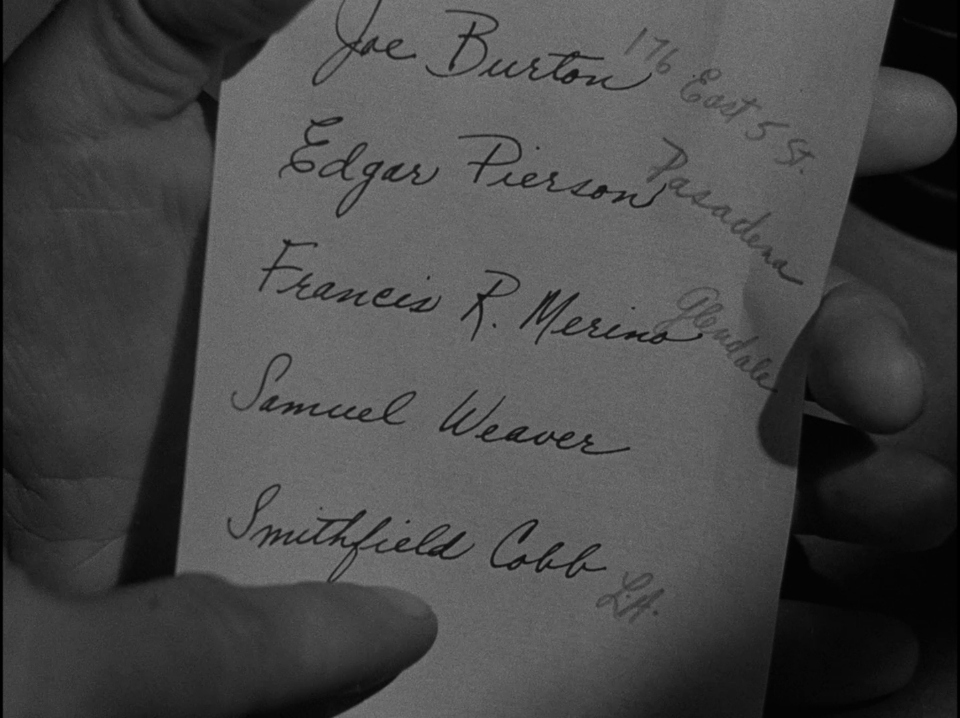 Joe Burton 176 East 5 St.
Edgar Pierson Pasadena
Francis R. Merino Glendale
Samuel Weaver
Smithfield Cobb L.A.